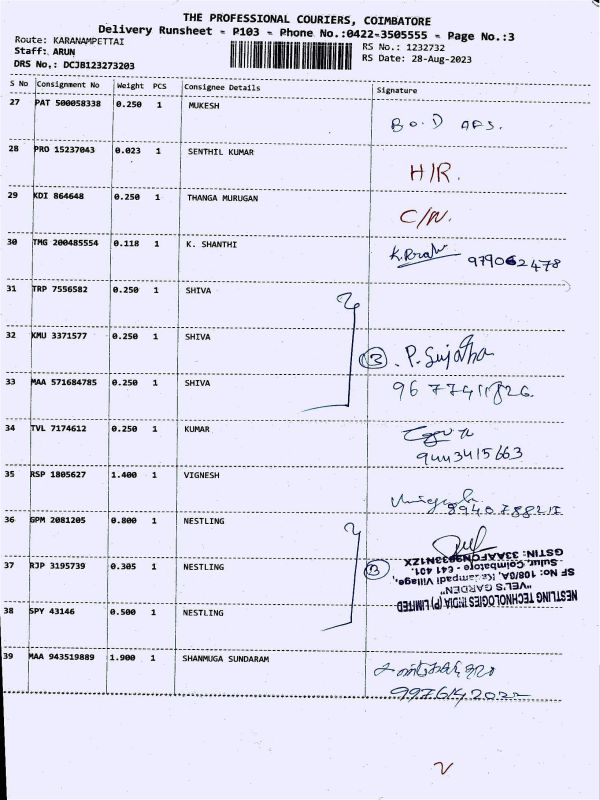 THE PROFESSIONAL COURIERS, COIMBATORE
Delivery Runsheet - P103 - Phone No.:0422-3505555 - Page No.:3
Route: KARANAMPETTAI
Staff: ARUN
DRS No,: DCJB123273203
RS No.: 1232732
RS Date: 28-Aug-2023
S No Consignment No Weight PCS Consignee Details Signature
27 PAT 500058338 0.250 1 MUKESH
28 PRO 15237043 0.023 1 SENTHIL KUMAR H/R.
29 KDI 864648 0.250 1 THANGA MURUGAN C/N.
30 TMG 200485554 0.118 1 K. SHANTHI 979062478
31 TRP 7556582 0.250 1 SHIVA
32 KMU 3371577 0.250 1 SHIVA 3 . P. Sujatha
33 MAA 571684785 0.250 1 SHIVA
34 TVL 7174612 0.250 1 KUMAR
9443415663
35 RSP 1805627 1.400 1 VIGNESH
36 GPM 2081205 0.800 1 NESTLING
37 RJP 3195739 0.305 1 NESTLING
38 SPY 43146 0.500 1 NESTLING
NESTLING TECHNOLOGIES INDIA (P) LIMITED
"VEL'S GARDEN"
SF No: 108/9A, Village,
Sulur, Coimbatore - 641 401.
GSTIN:
39 MAA 943519889 1.900 1 SHANMUGA SUNDARAM